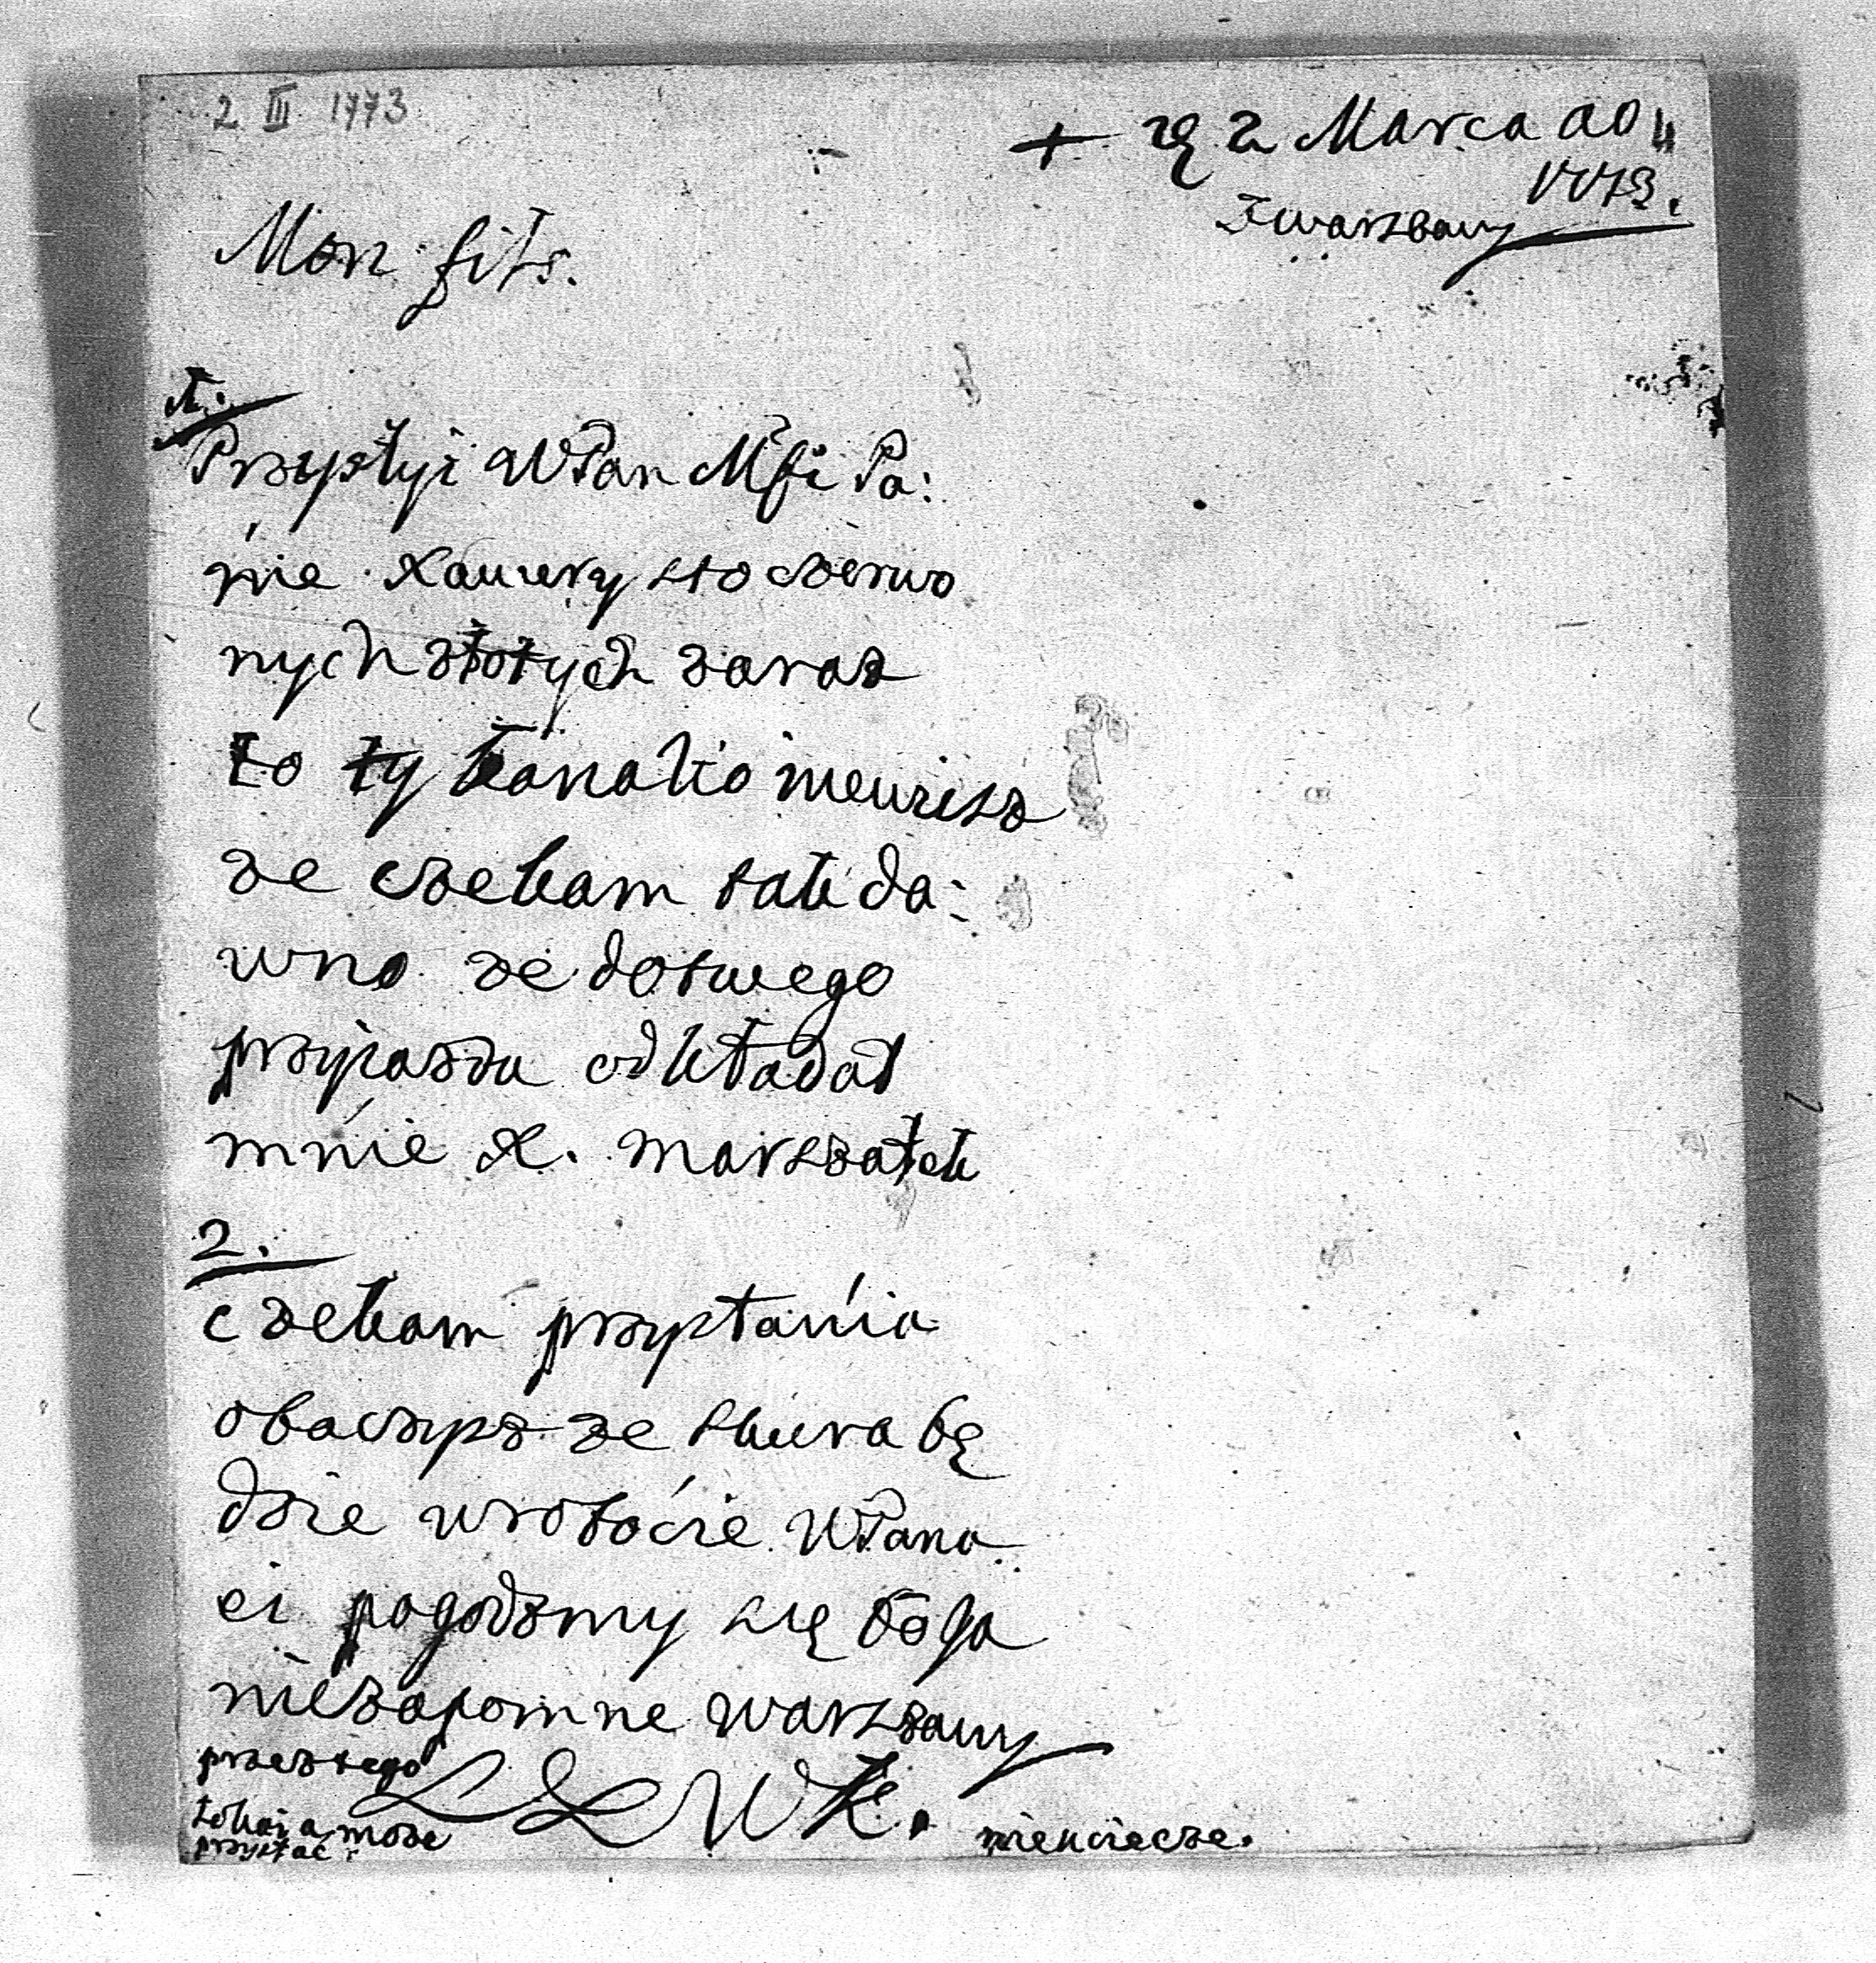 2 III 1773
+ 2 Marca ao
1773.
z warszawy
Mon fils.
1.
Przyslyi WPan Mści Pa:
nie Xawery sto czerwo
nych złotych zaraz
bo ty kanalio niewiesz
ze czekam tak da:
wno ze dotwego
przyiazdu odkładał
mnie X. marszałek
2.
czekam przysłania
obaczysz ze skura bę
dzie wrobócie WPana
ei pogodzmy się boga
niezapomne warszawy
przeztego
lokaia moze
przysłać
nieuciecze.